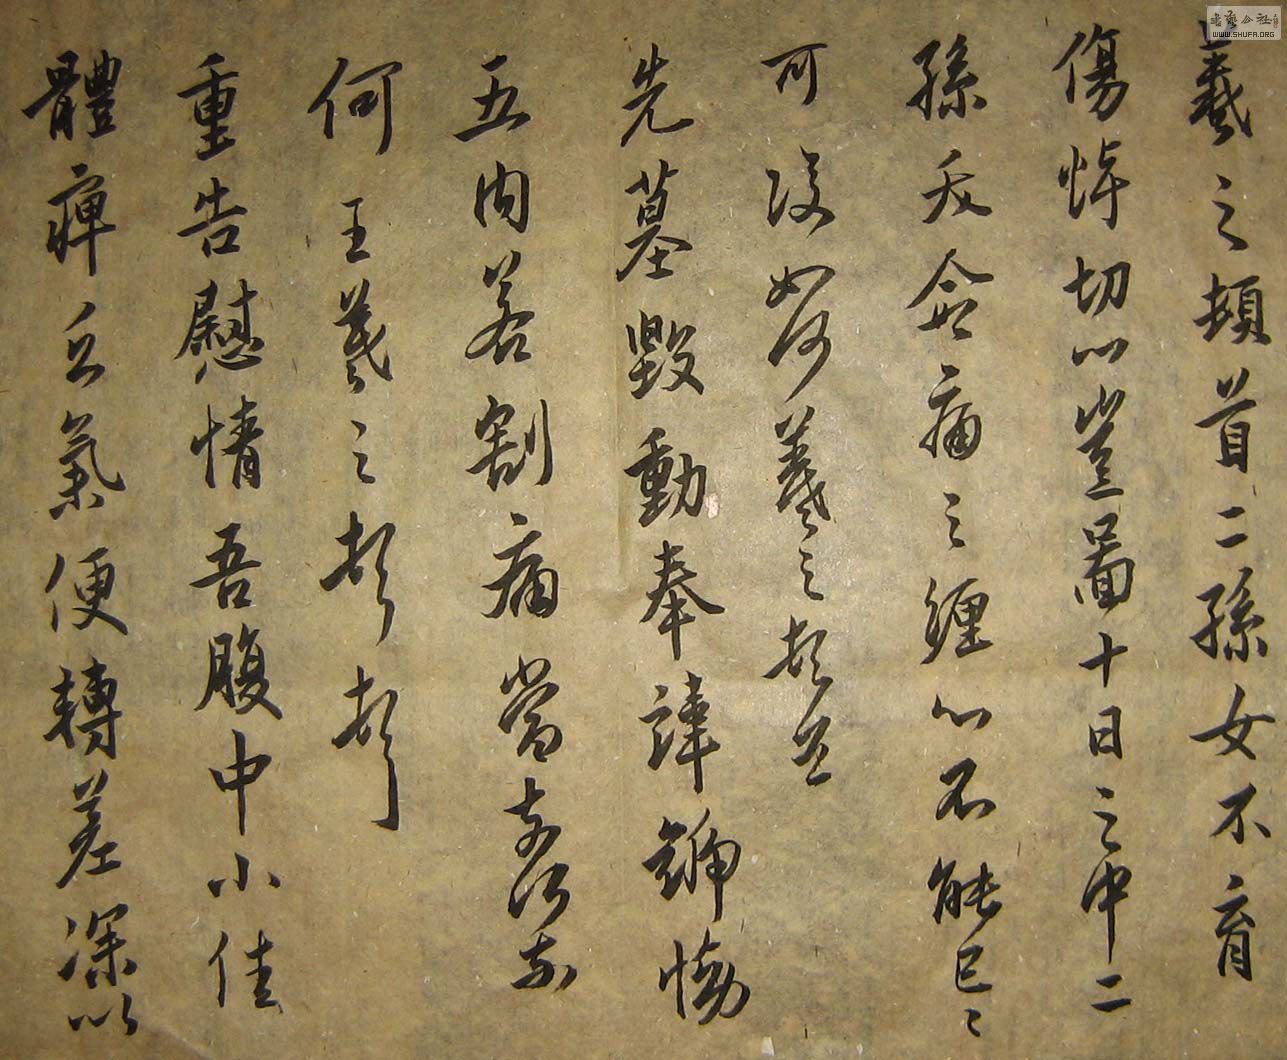 羲之頓首二孫女不育
傷悼切心豈圖十日之中二
孫夭命痛之纏心不能已已
可復如何羲之頓首
先墓毀動奉諱號慟
五內若割痛當奈何奈
何王羲之頓首頓首
重告慰情吾腹中小佳
體痺乏氣便轉差深以
書藝公社
WWW.SHUFA.ORG